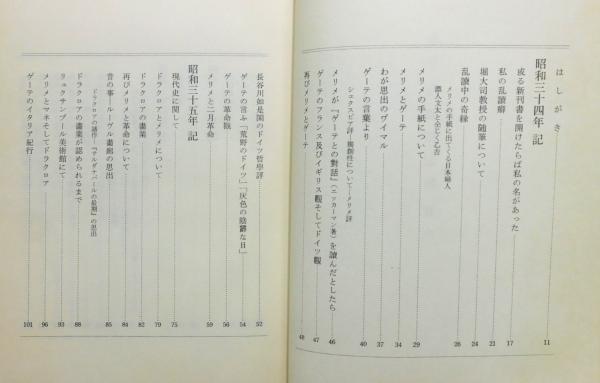 はしがき
昭和三十四年 記
或る新刊書を開けたらば私の名があった 11
私の乱読癖 17
堀大司教授の随筆について 21
乱読中の奇縁 24
メリメの手紙に出てくる日本婦人
漂人文太と全じく乙吉
メリメの手紙について 29
メリメとゲーテ 34
わが思出のヴイマル 37
ゲーテの言葉より 40
シェクスピア評・獨創性について・メリメ評
メリメが『ゲーテとの對話』(エッカーマン著)を讀んだとしたら 46
ゲーテのフランス及びイギリス觀そしてドイツ觀 47
再びメリメとゲーテ 48
長谷川如是閑のドイツ哲學評 52
ゲーテの言ふ「荒野のドイツ」「灰色の陰鬱な日」 54
ゲーテの革命観 56
メリメと二月革命 59
昭和三十五年 記
現代史に関して 75
ドラクロアとメリメについて 79
ドラクロアの畫業 82
再びメリメと革命について 84
昔の事―ルーヴル畫館の思出 85
ドラクロアの諸作・『サルダナパールの最期』の思出
ドラクロアの畫業が認められるまで 88
リュクサンブール美術館にて 93
メリメとマネそしてドラクロア 96
ゲーテのイタリア紀行 101